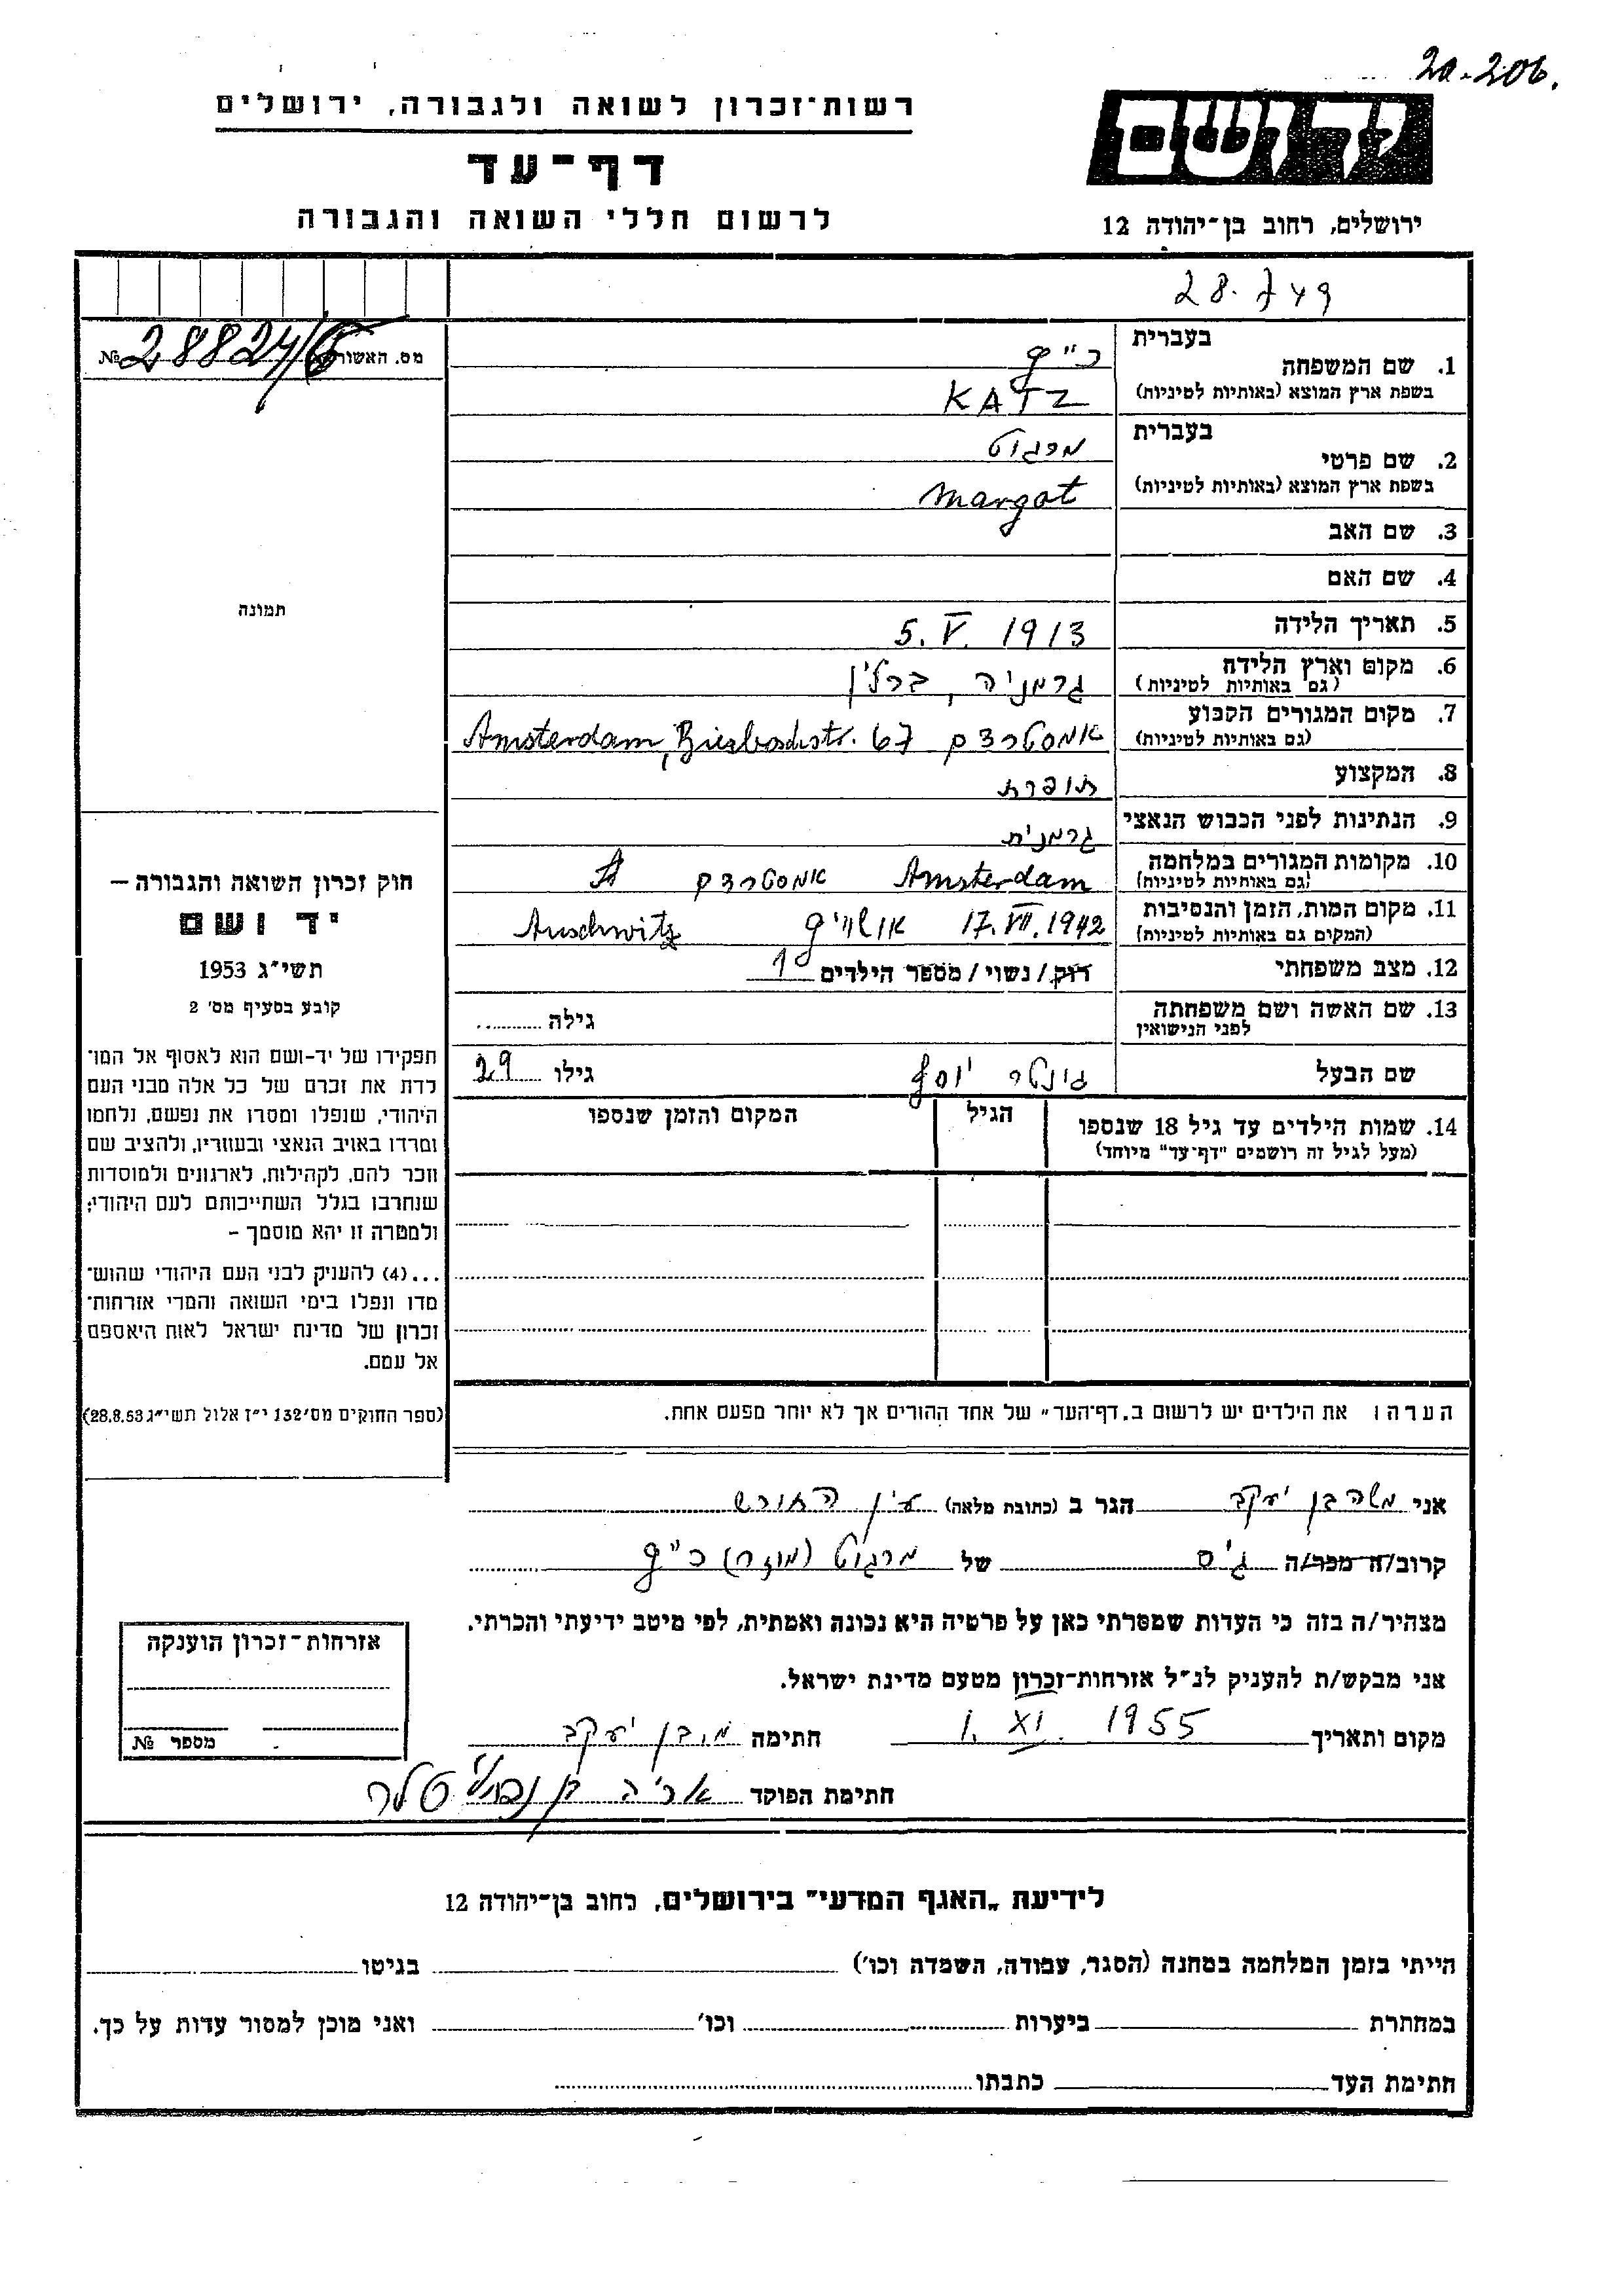 20-206.
רשות־זכרון לשואה ולגבורה, ירושלים
יד ושם
דף־עד
לרשום חללי השואה והגבורה
ירושלים, רחוב בן־יהודה 12
28.749
מס. האשור № 28824/6
1. שם המשפחה
בעברית כ"ץ
בשפת ארץ המוצא (באותיות לטיניות) KATZ
2. שם פרטי
בעברית מרגוט
בשפת ארץ המוצא (באותיות לטיניות) Margot
3. שם האב
4. שם האם
תמונה
5. תאריך הלידה 5. V. 1913
6. מקום וארץ הלידה
(גם באותיות לטיניות) גרמניה, ברלין
7. מקום המגורים הקבוע
(גם באותיות לטיניות) אמסטרדם Amsterdam, Biesboschstr. 67
8. המקצוע תופרת
9. הנתינות לפני הכבוש הנאצי גרמנית
10. מקומות המגורים במלחמה
(גם באותיות לטיניות) Amsterdam אמסטרדם
11. מקום המות, הזמן והנסיבות
(המקום גם באותיות לטיניות) 17. VII. 1942 אושויץ Auschwitz
12. מצב משפחתי רוק / נשוי / מספר הילדים 1
13. שם האשה ושם משפחתה
לפני הנישואין
גילה
שם הבעל גינטר יוסף גילו 29
14. שמות הילדים עד גיל 18 שנספו
(מעל לגיל זה רושמים "דף־עד" מיוחד)
הגיל
המקום והזמן שנספו
חוק זכרון השואה והגבורה –
יד ושם
תשי"ג 1953
קובע בסעיף מס' 2
תפקידו של יד-ושם הוא לאסוף אל המו־
לדת את זכרם של כל אלה מבני העם
היהודי, שנפלו ומסרו את נפשם, נלחמו
ומרדו באויב הנאצי ובעוזריו, ולהציב שם
וזכר להם, לקהילות, לארגונים ולמוסדות
שנחרבו בגלל השתייכותם לעם היהודי;
ולמטרה זו יהא מוסמך –
...(4) להעניק לבני העם היהודי שהוש־
מדו ונפלו בימי השואה והמרי אזרחות־
זכרון של מדינת ישראל לאות היאספם
אל עמם.
(ספר החוקים מס' 132 י"ז אלול תשי"ג 28.8.53)
הערה: את הילדים יש לרשום ב„דף־העד" של אחד ההורים אך לא יותר מפעם אחת.
אני משה בן יעקב הגר ב (כתובת מלאה) עין החורש
קרוב/ה מכר/ה גיס של מרגוט כ"ץ
מצהיר/ה בזה כי העדות שמסרתי כאן על פרטיה היא נכונה ואמתית, לפי מיטב ידיעתי והכרתי.
אני מבקש/ת להעניק לנ"ל אזרחות־זכרון מטעם מדינת ישראל.
מקום ותאריך 1. XI. 1955 חתימה מ. בן יעקב
חתימת הפוקד אריה בן
אזרחות־זכרון הוענקה
מספר №
לידיעת „האגף המדעי" בירושלים, רחוב בן־יהודה 12
הייתי בזמן המלחמה במחנה (הסגר, עבודה, השמדה וכו') בגיטו
במחתרת ביערות וכו' ואני מוכן למסור עדות על כך.
חתימת העד כתבתו